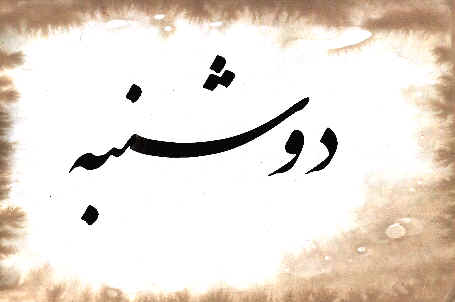 دوشنبه